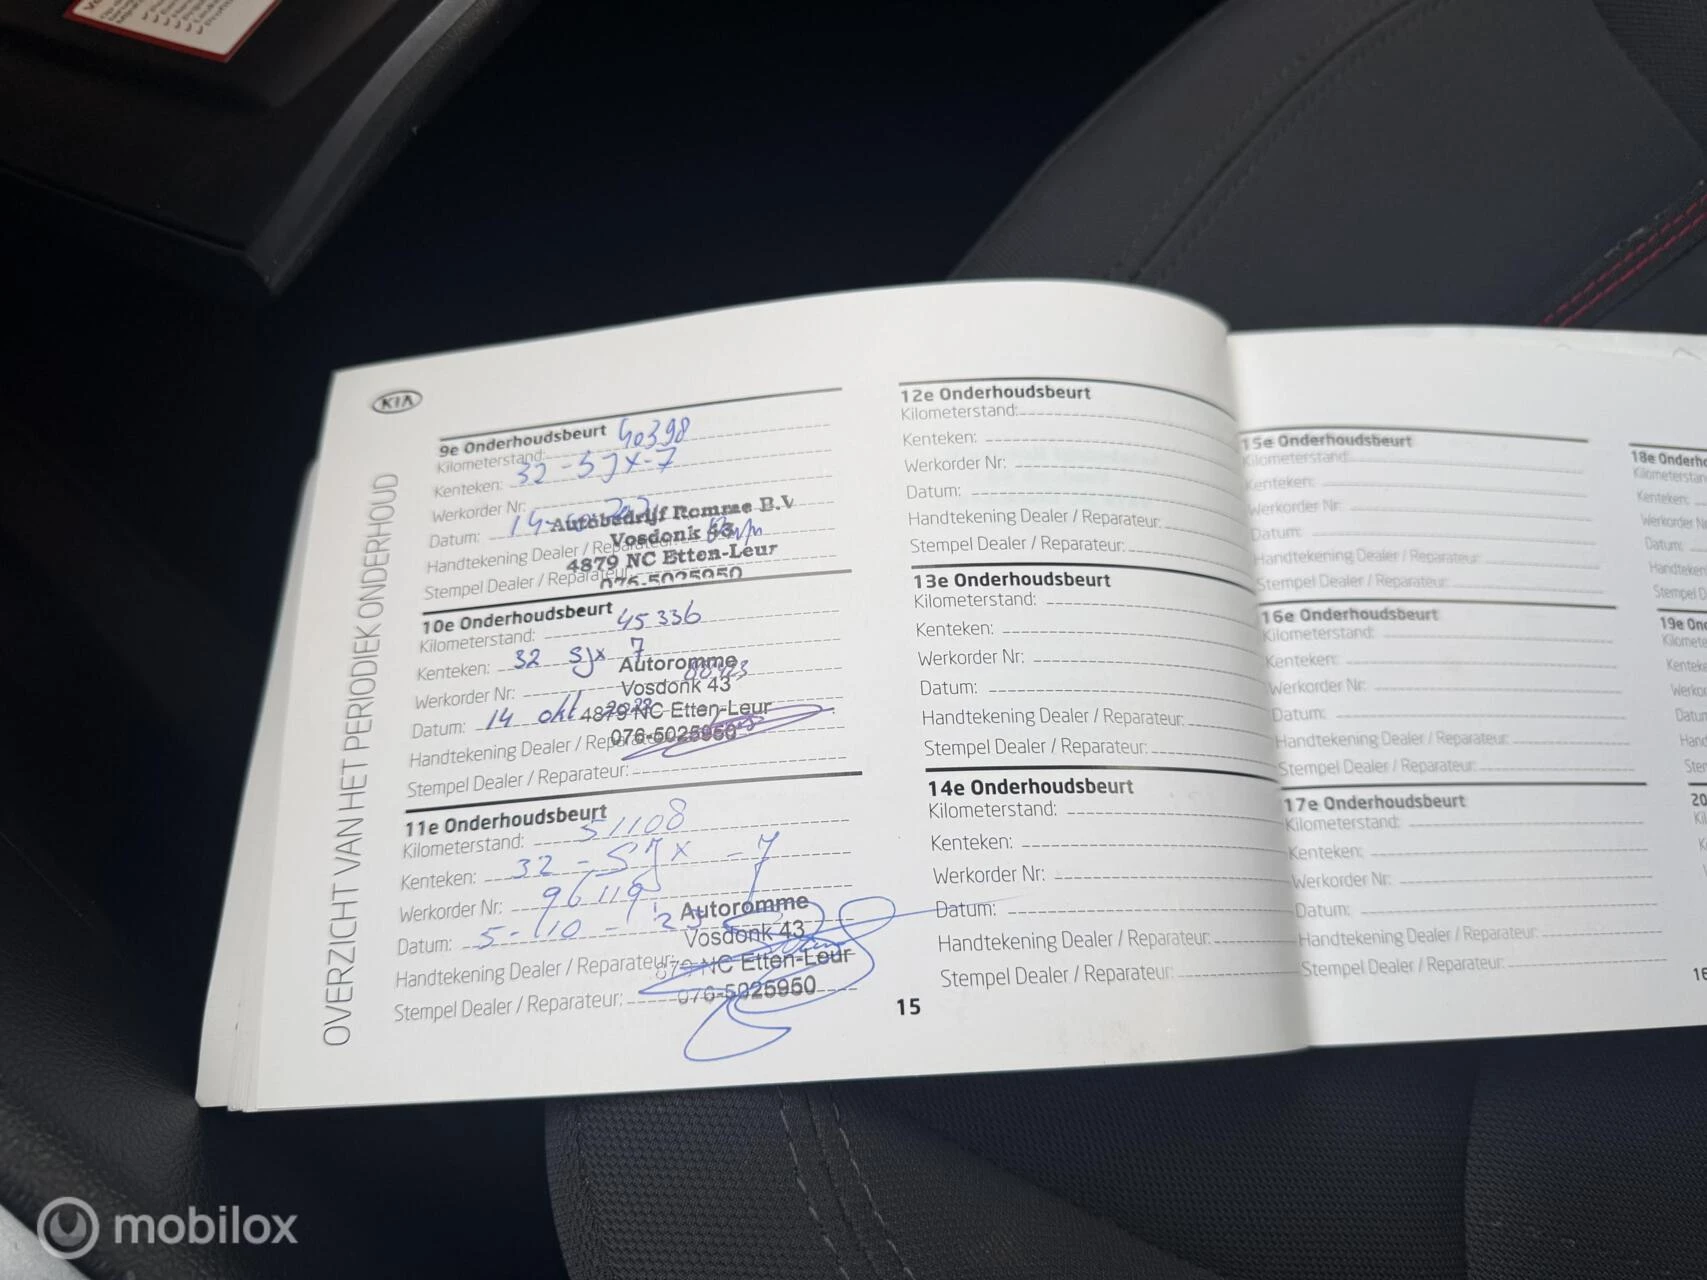 KIA
OVERZICHT VAN HET PERIODIEK ONDERHOUD
9e Onderhoudsbeurt
Kilometerstand: 40398
Kenteken: 32-SJX-7
Werkorder Nr:
Datum:
Handtekening Dealer / Reparateur:
Stempel Dealer / Reparateur:
Autobedrijf Romme B.V
Vosdonk 43
4879 NC Etten-Leur
076-5025950
10e Onderhoudsbeurt
Kilometerstand: 45336
Kenteken: 32 SJX 7
Werkorder Nr:
Datum: 14 okt
Handtekening Dealer / Reparateur:
Stempel Dealer / Reparateur:
Autoromme
Vosdonk 43
4879 NC Etten-Leur
076-5025950
11e Onderhoudsbeurt
Kilometerstand: 51108
Kenteken: 32-SJX-7
Werkorder Nr: 96119
Datum: 5-10-'23
Handtekening Dealer / Reparateur:
Stempel Dealer / Reparateur:
Autoromme
Vosdonk 43
879 NC Etten-Leur
076-5025950
12e Onderhoudsbeurt
Kilometerstand:
Kenteken:
Werkorder Nr:
Datum:
Handtekening Dealer / Reparateur:
Stempel Dealer / Reparateur:
13e Onderhoudsbeurt
Kilometerstand:
Kenteken:
Werkorder Nr:
Datum:
Handtekening Dealer / Reparateur:
Stempel Dealer / Reparateur:
14e Onderhoudsbeurt
Kilometerstand:
Kenteken:
Werkorder Nr:
Datum:
Handtekening Dealer / Reparateur:
Stempel Dealer / Reparateur:
15
15e Onderhoudsbeurt
Kilometerstand:
Kenteken:
Werkorder Nr:
Datum:
Handtekening Dealer / Reparateur:
Stempel Dealer / Reparateur:
16e Onderhoudsbeurt
Kilometerstand:
Kenteken:
Werkorder Nr:
Datum:
Handtekening Dealer / Reparateur:
Stempel Dealer / Reparateur:
17e Onderhoudsbeurt
Kilometerstand:
Kenteken:
Werkorder Nr:
Datum:
Handtekening Dealer / Reparateur:
Stempel Dealer / Reparateur:
18e Onderho
Kilometerstan
Kenteken:
Werkorder Nr
Datum:
Handteken
Stempel D
19e Ond
Kilomete
Kenteke
Werkor
Datur
Hand
Ster
20
16
mobilox